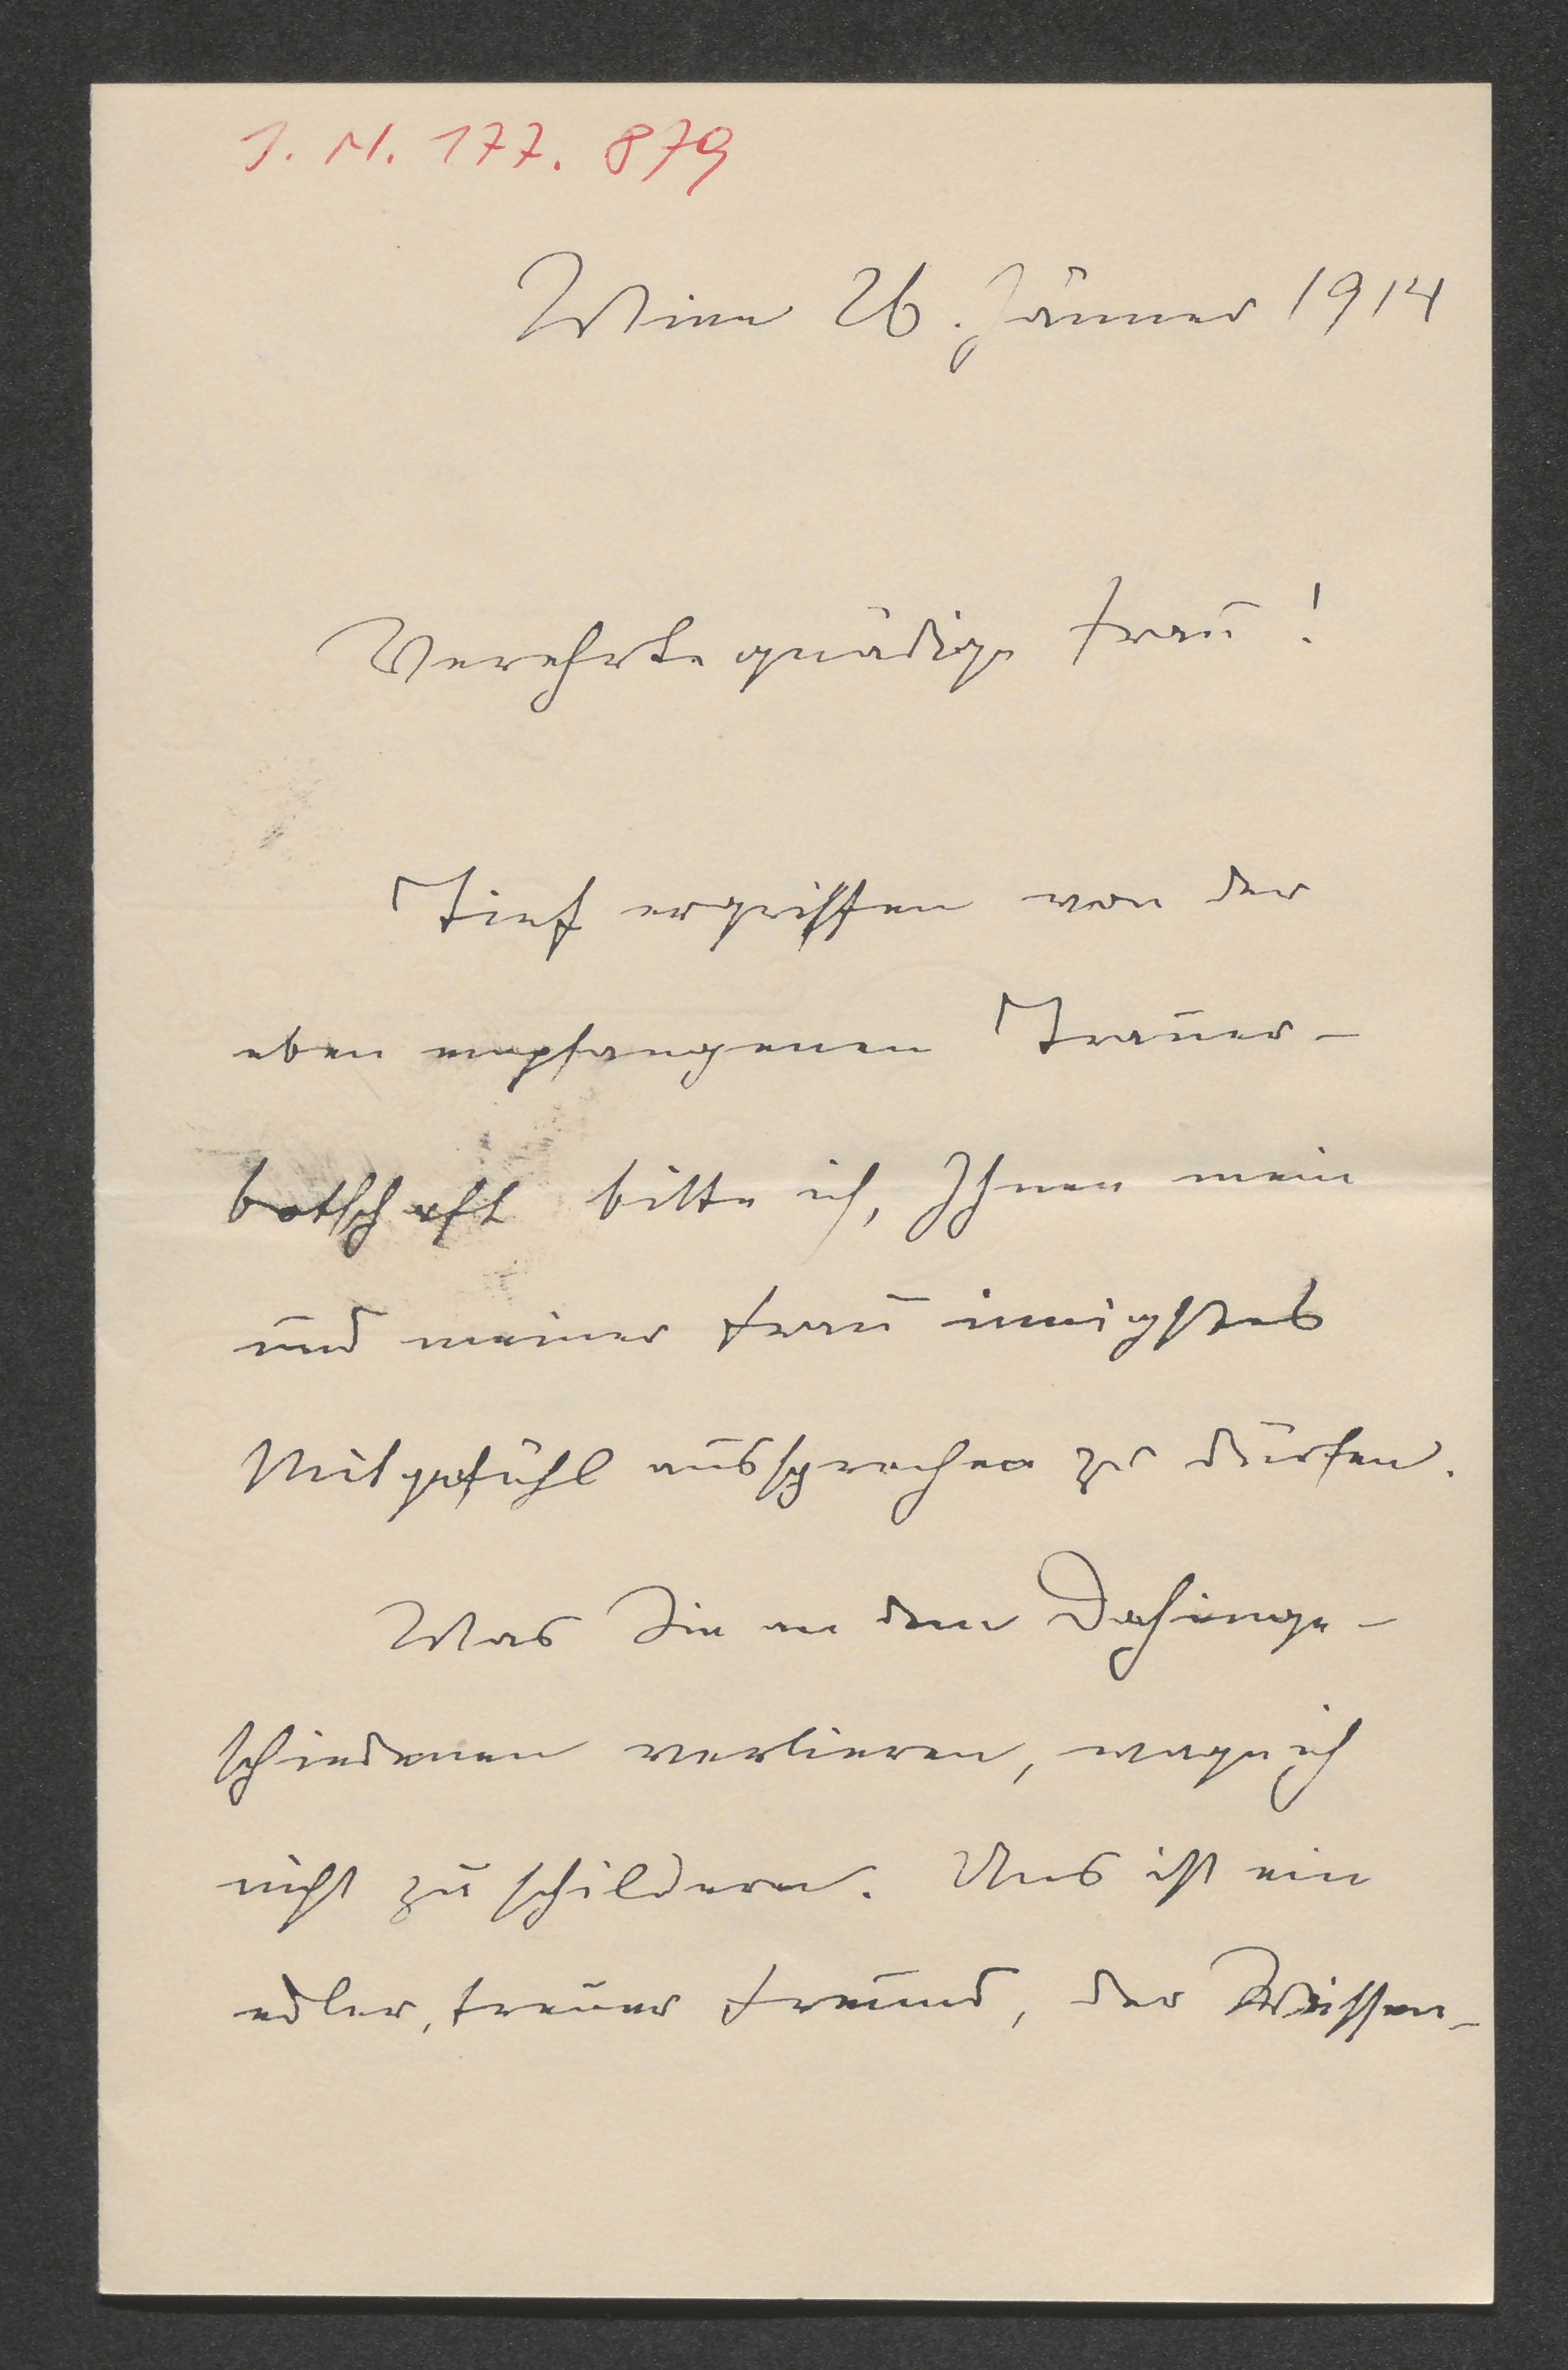 J. N. 177. 879
Wien 26. Jänner 1914
Verehrte gnädige Frau!
Tief ergriffen von der
eben empfangenen Trauer-
botschaft bitte ich, Ihnen mein
und meiner Frau innigstes
Mitgefühl aussprechen zu dürfen.
Was Sie an dem Dahinge-
schiedenen verlieren, wage ich
nicht zu schildern. Uns ist ein
edler, treuer Freund, der Wissen-